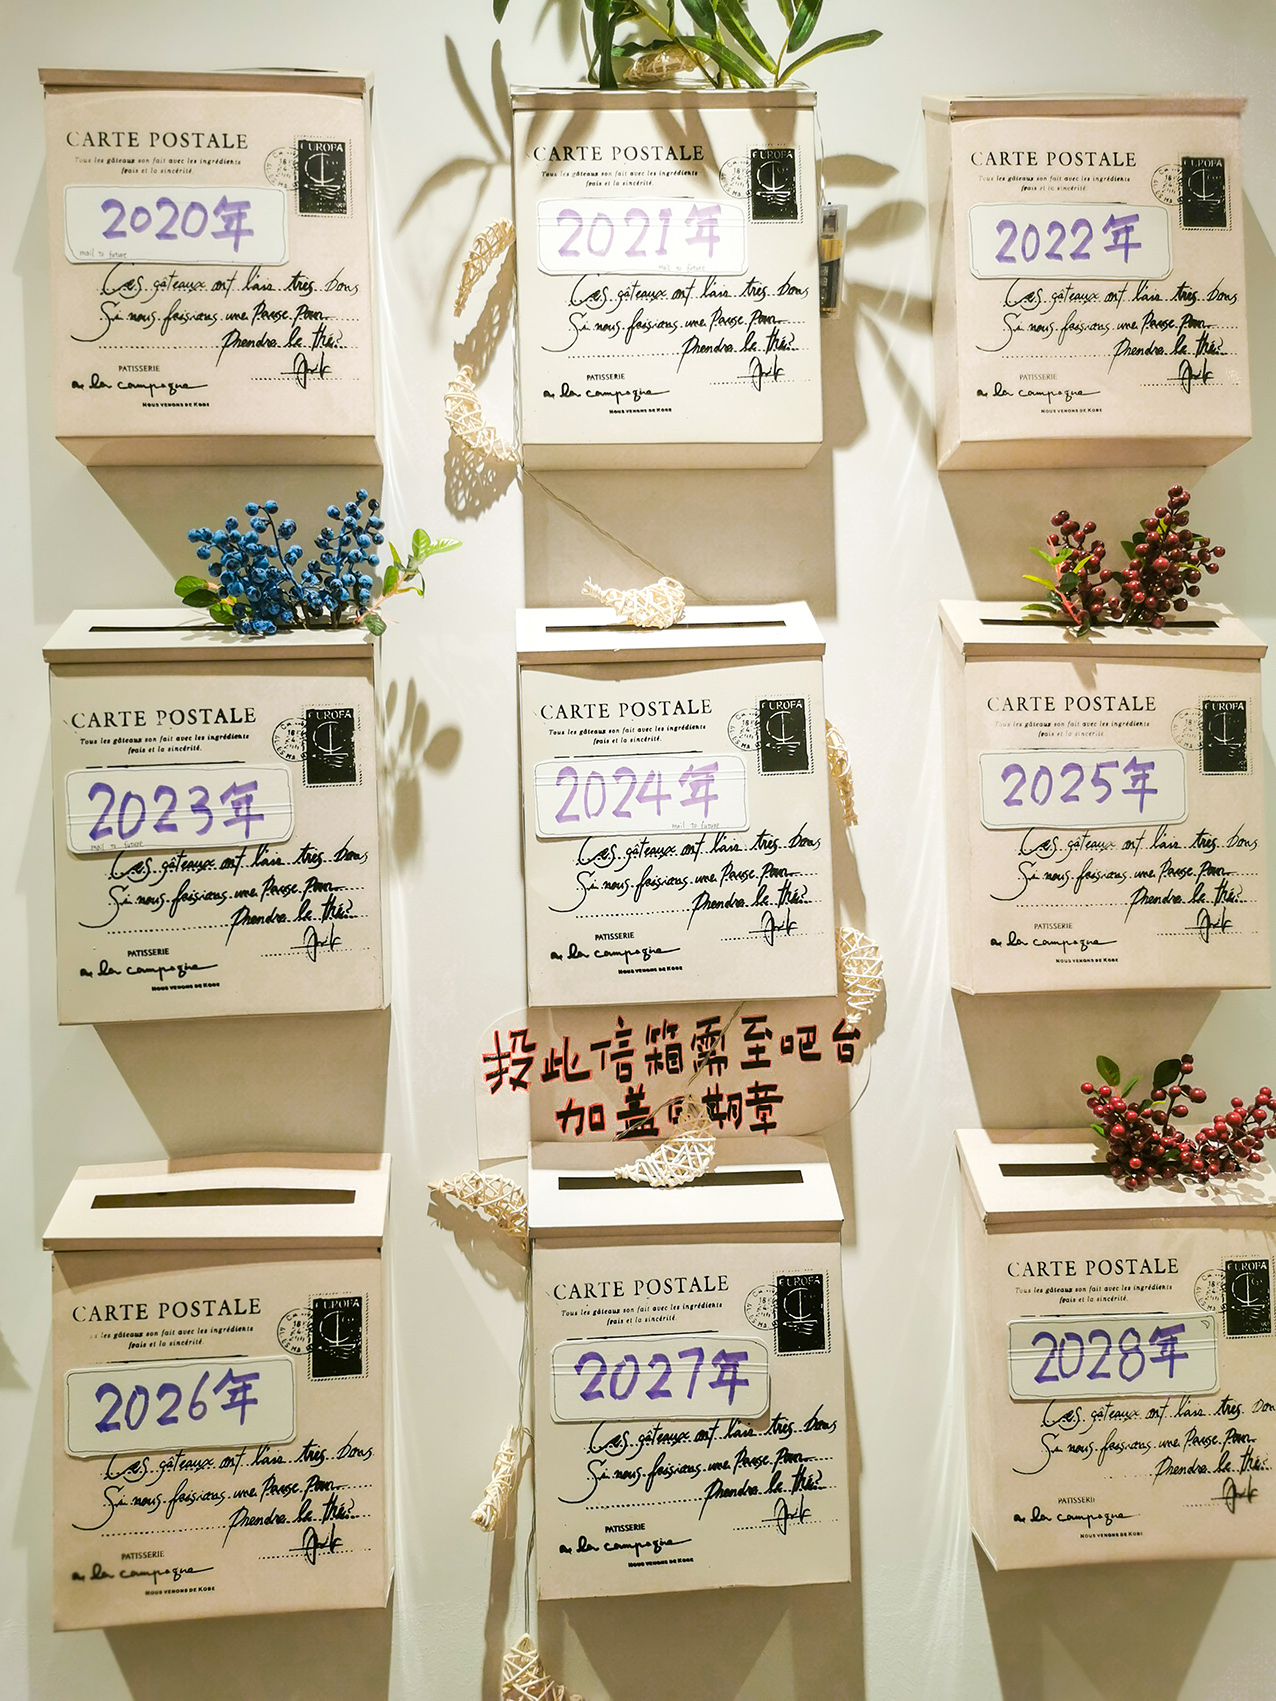 CARTE POSTALE
Tous les gâteaux son fait avec les ingrédients
frais et la sincérité.
EUROFA
2020年
mail to future
Ces gâteaux ont l'air très bons
Si nous faisions une Pause Pour
Prendre le thé?
PATISSERIE
a la campagne
NOUS VENONS DE KOBE
CARTE POSTALE
Tous les gâteaux son fait avec les ingrédients
frais et la sincérité.
EUROFA
2021年
mail to future
Ces gâteaux ont l'air très bons
Si nous faisions une Pause Pour
Prendre le thé?
PATISSERIE
a la campagne
NOUS VENONS DE KOBE
CARTE POSTALE
Tous les gâteaux son fait avec les ingrédients
frais et la sincérité.
EUROFA
2022年
Ces gâteaux ont l'air très bons
Si nous faisions une Pause Pour
Prendre le thé?
PATISSERIE
a la campagne
NOUS VENONS DE KOBE
CARTE POSTALE
Tous les gâteaux son fait avec les ingrédients
frais et la sincérité.
EUROFA
2023年
mail to future
Ces gâteaux ont l'air très bons
Si nous faisions une Pause Pour
Prendre le thé?
PATISSERIE
a la campagne
NOUS VENONS DE KOBE
CARTE POSTALE
Tous les gâteaux son fait avec les ingrédients
frais et la sincérité.
EUROFA
2024年
mail to future
Ces gâteaux ont l'air très bons
Si nous faisions une Pause Pour
Prendre le thé?
PATISSERIE
a la campagne
NOUS VENONS DE KOBE
CARTE POSTALE
Tous les gâteaux son fait avec les ingrédients
frais et la sincérité.
EUROFA
2025年
Ces gâteaux ont l'air très bons
Si nous faisions une Pause Pour
Prendre le thé?
PATISSERIE
a la campagne
NOUS VENONS DE KOBE
投此信箱需至吧台
加盖日期章
CARTE POSTALE
les gâteaux son fait avec les ingrédients
frais et la sincérité.
EUROFA
2026年
Ces gâteaux ont l'air très bons
Si nous faisions une Pause Pour
Prendre le thé?
PATISSERIE
a la campagne
NOUS VENONS DE KOBE
CARTE POSTALE
Tous les gâteaux son fait avec les ingrédients
frais et la sincérité.
EUROFA
2027年
Ces gâteaux ont l'air très bons
Si nous faisions une Pause Pour
Prendre le thé?
PATISSERIE
a la campagne
NOUS VENONS DE KOBE
CARTE POSTALE
Tous les gâteaux son fait avec les ingrédients
frais et la sincérité.
EUROFA
2028年
Ces gâteaux ont l'air très bon
Si nous faisions une Pause Pour
Prendre le thé?
PATISSERIE
a la campagne
NOUS VENONS DE KOBE